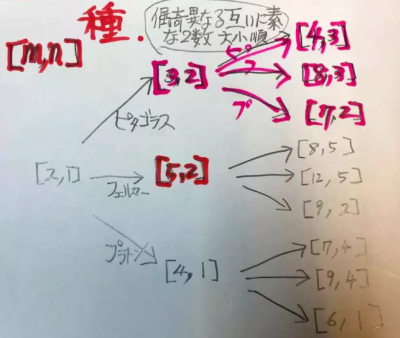 種.
偶奇異なる互いに素
な2数 大小順
[m,n]
[3,2]
ピ
[4,3]
フ
[8,3]
プ
[7,2]
ピタゴラス
[2,1]
フェルマー
[5,2]
[8,5]
[12,5]
[9,2]
プラトン
[4,1]
[7,4]
[9,4]
[6,1]